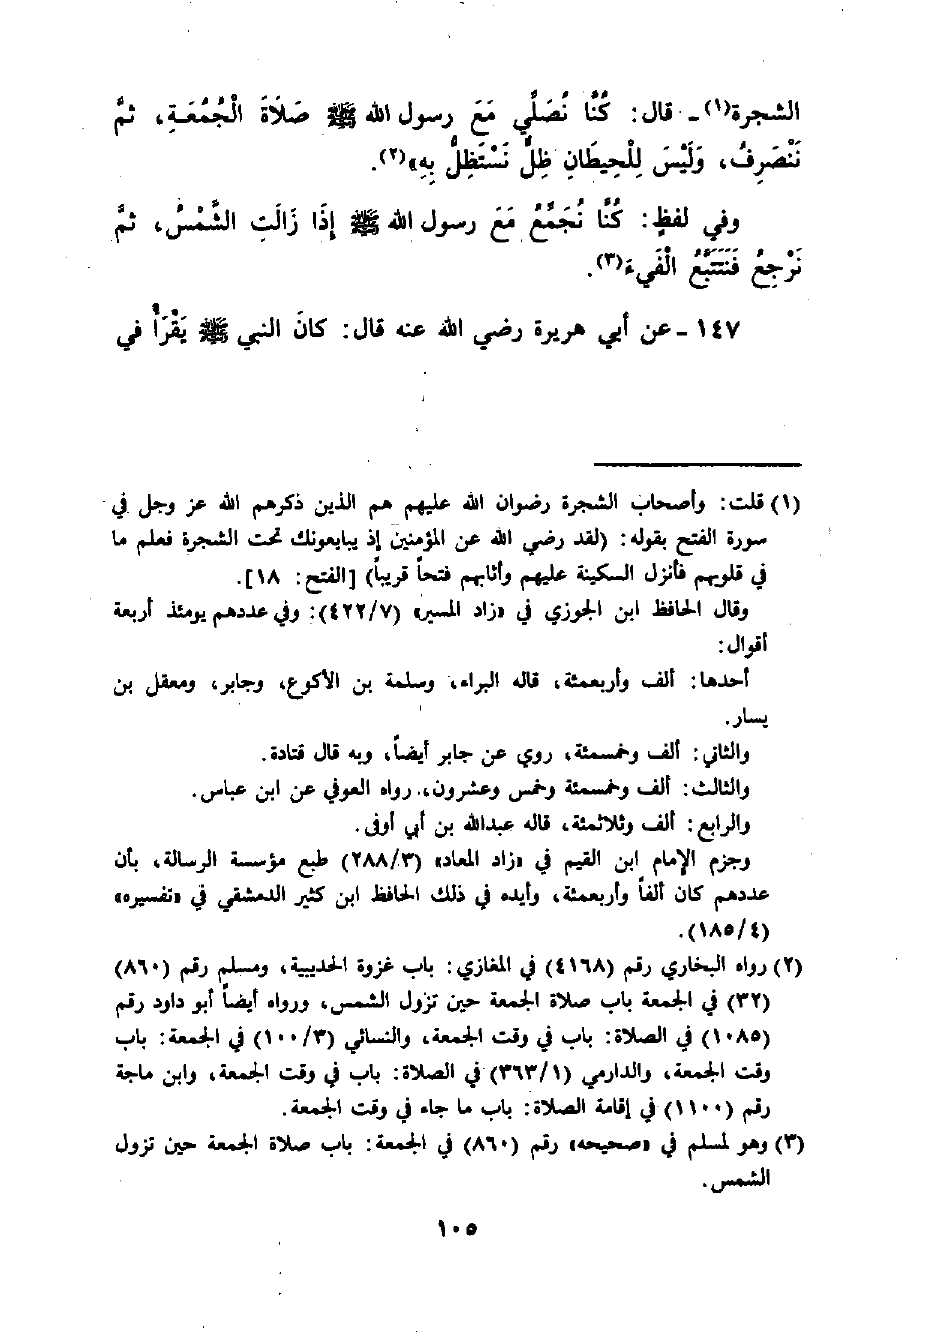 الشجرة(١) ـ قال: كُنَّا نُصَلِّي مَعَ رسول الله ﷺ صَلَاةَ الْجُمُعَةِ، ثمَّ
نَنْصَرِفُ، وَلَيْسَ لِلْحِيطَانِ ظِلٌّ نَسْتَظِلُّ بِهِ»(٢).
وفي لفظٍ: كُنَّا نُجَمِّعُ مَعَ رسول الله ﷺ إِذَا زَالَتِ الشَّمْسُ، ثمَّ
نَرْجِعُ فَنَتَتَبَّعُ الْفَيءَ(٣).
١٤٧ ـ عن أبي هريرة رضي الله عنه قال: كانَ النبي ﷺ يَقْرَأُ في
(١) قلت: وأصحاب الشجرة رضوان الله عليهم هم الذين ذكرهم الله عز وجل في
سورة الفتح بقوله: (لقد رضي الله عن المؤمنين إذ يبايعونك تحت الشجرة فعلم ما
في قلوبهم فأنزل السكينة عليهم وأثابهم فتحاً قريباً) [الفتح: ١٨].
وقال الحافظ ابن الجوزي في «زاد المسير» (٤٢٢/٧): وفي عددهم يومئذ أربعة
أقوال:
أحدها: ألف وأربعمئة، قاله البراء، وسلمة بن الأكوع، وجابر، ومعقل بن
يسار.
والثاني: ألف وخمسمئة، روي عن جابر أيضاً، وبه قال قتادة.
والثالث: ألف وخمسمئة وخمس وعشرون، رواه العوفي عن ابن عباس.
والرابع: ألف وثلاثمئة، قاله عبدالله بن أبي أوفى.
وجزم الإمام ابن القيم في «زاد المعاد» (٢٨٨/٣) طبع مؤسسة الرسالة، بأن
عددهم كان ألفاً وأربعمئة، وأيده في ذلك الحافظ ابن كثير الدمشقي في «تفسيره»
(١٨٥/٤).
(٢) رواه البخاري رقم (٤١٦٨) في المغازي: باب غزوة الحديبية، ومسلم رقم (٨٦٠)
(٣٢) في الجمعة باب صلاة الجمعة حين تزول الشمس، ورواه أيضاً أبو داود رقم
(١٠٨٥) في الصلاة: باب في وقت الجمعة، والنسائي (١٠٠/٣) في الجمعة: باب
وقت الجمعة، والدارمي (٣٦٣/١) في الصلاة: باب في وقت الجمعة، وابن ماجة
رقم (١١٠٠) في إقامة الصلاة: باب ما جاء في وقت الجمعة.
(٣) وهو لمسلم في «صحيحه» رقم (٨٦٠) في الجمعة: باب صلاة الجمعة حين تزول
الشمس.
١٠٥